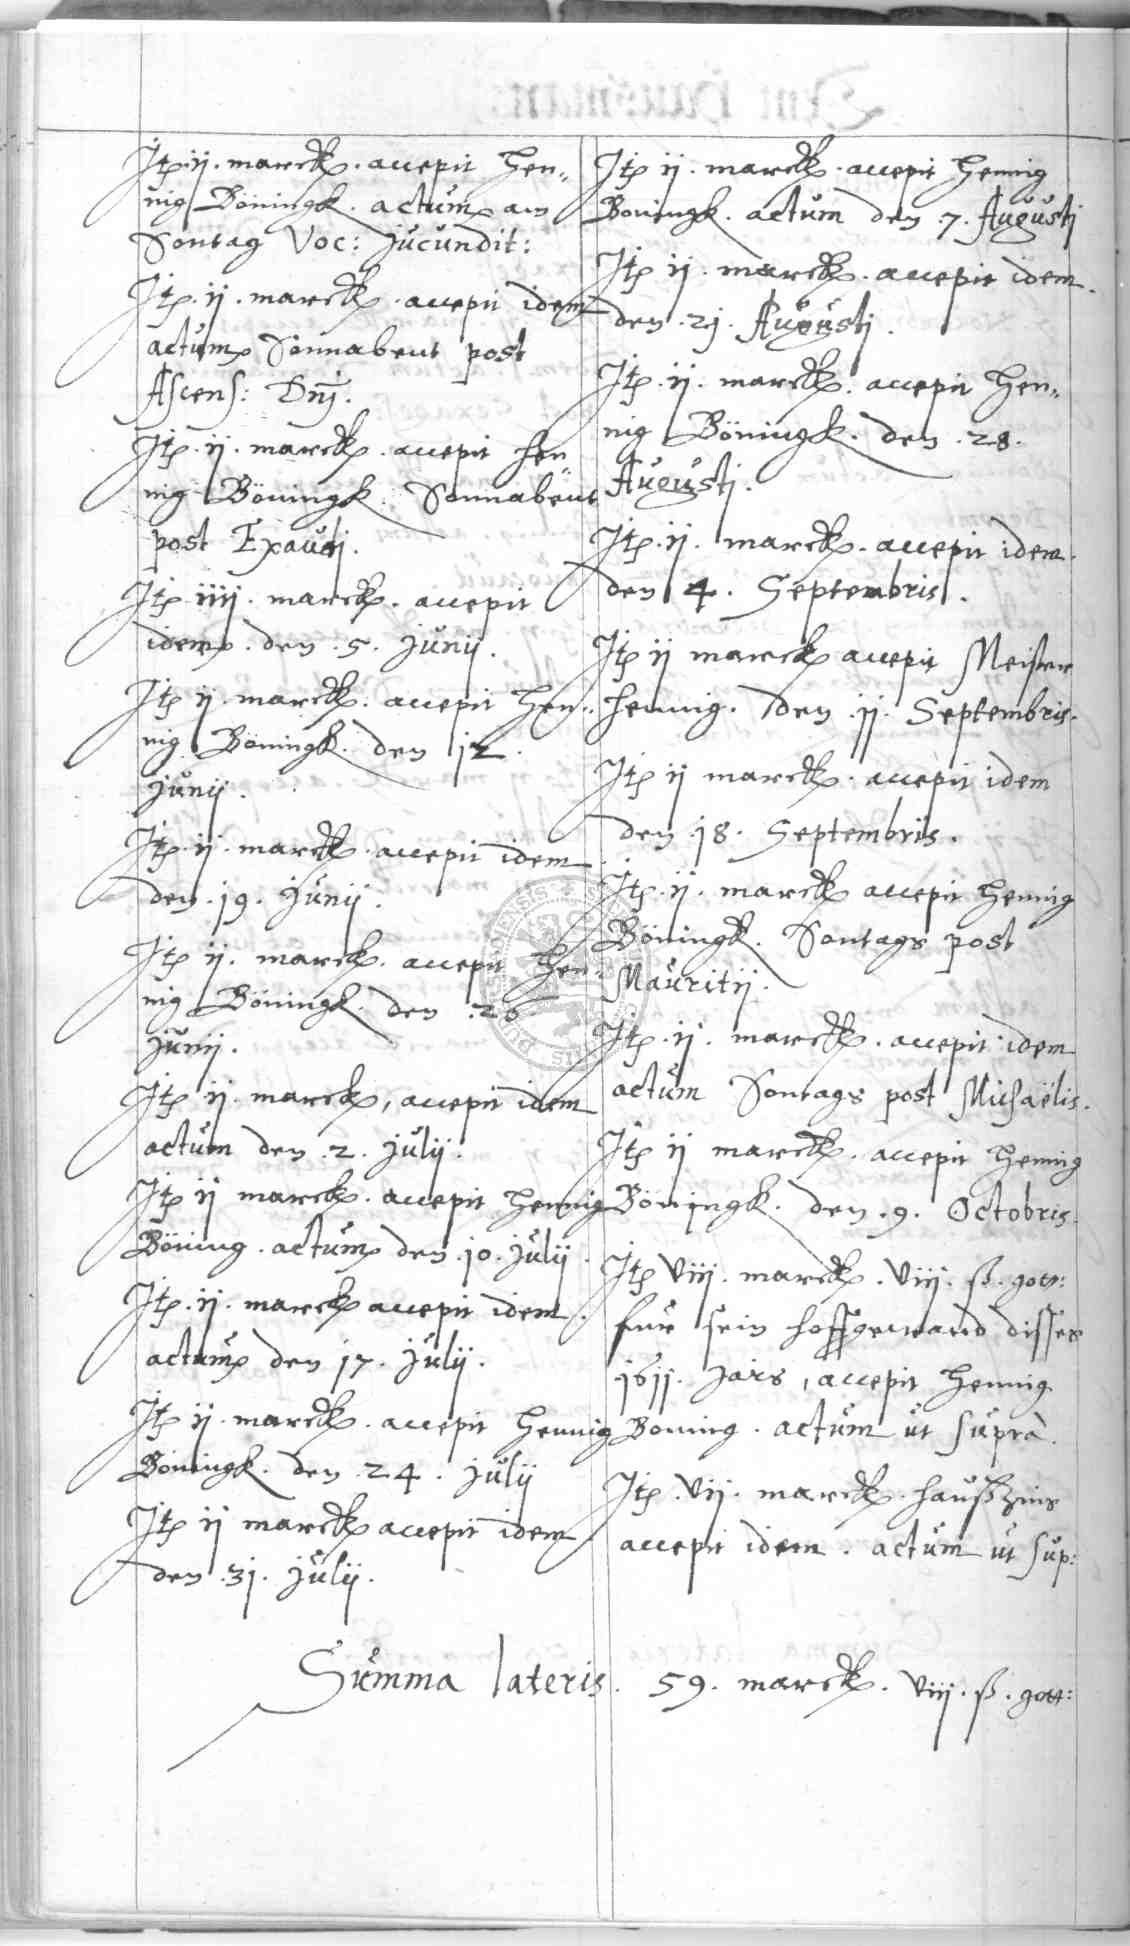 Itꝫ ij. marckꝫ. accepit Hen„
nig Böningk. actum am
Sontag Voc: Jucundit:
Itꝫ. ij. marckꝫ. accepit idem
actum Sonnabent post
Ascens: Dnj.
Itꝫ. ij. marckꝫ. accepit Hen„
nig Böningk. Sonnabent
post Exaudi.
Itꝫ iiij. marckꝫ. accepit
idem. den .5. Junij.
Itꝫ ij. marckꝫ. accepit Hen„
nig Böningk. den 12.
Junij.
Itꝫ. ij. marckꝫ. accepit idem
den .19. Junij.
Itꝫ ij. marck. accepit Hen„
nig Böningk. den .26
Junij.
Itꝫ ij. marckꝫ, accepit idem
actum den .2. Julij.
Itꝫ ij marckꝫ. accepit Hennig
Böning. actum den .10. Julij.
Itꝫ. ij. marckꝫ accepit idem.
actum den 17. Julij.
Itꝫ ij. marckꝫ. accepit Hennig
Böningk. den .24. Julij
Itꝫ ij marckꝫ accepit idem
den .31. Julij.
Itꝫ ij. marckꝫ. accepit Hennig
Boningk. actum den 7. Augusti
Itꝫ ij. marckꝫ. accepit idem.
den .21. Augusti.
Itꝫ. ij. marckꝫ. accepit Hen„
nig Böningk. den .28.
Augusti.
Itꝫ. ij. marckꝫ. accepit idem.
den 4. Septembris.
Itꝫ ij marckꝫ accepit Meister
Hennig. den .11. Septembris.
Itꝫ ij marckꝫ. accepit idem
den .18. Septembris.
Itꝫ. ij. marckꝫ accepit Hennig
Böningk. Sontags post
Mauritij.
Itꝫ. ij. marckꝫ. accepit idem
actum Sontags post Michaëlis.
Itꝫ ij marckꝫ. accepit Hennig
Böningk. den .9. Octobris.
Itꝫ Viij. marckꝫ. Viij. ß. gott:
fur sein hoffgewand disses
1611. Jars, accepit Hennig
Boning. actum ut suprà.
Itꝫ. Vij. marckꝫ. haußzins
accepit idem. actum ut sup:
Summa lateris. 59. marckꝫ. viij. ß. gott: